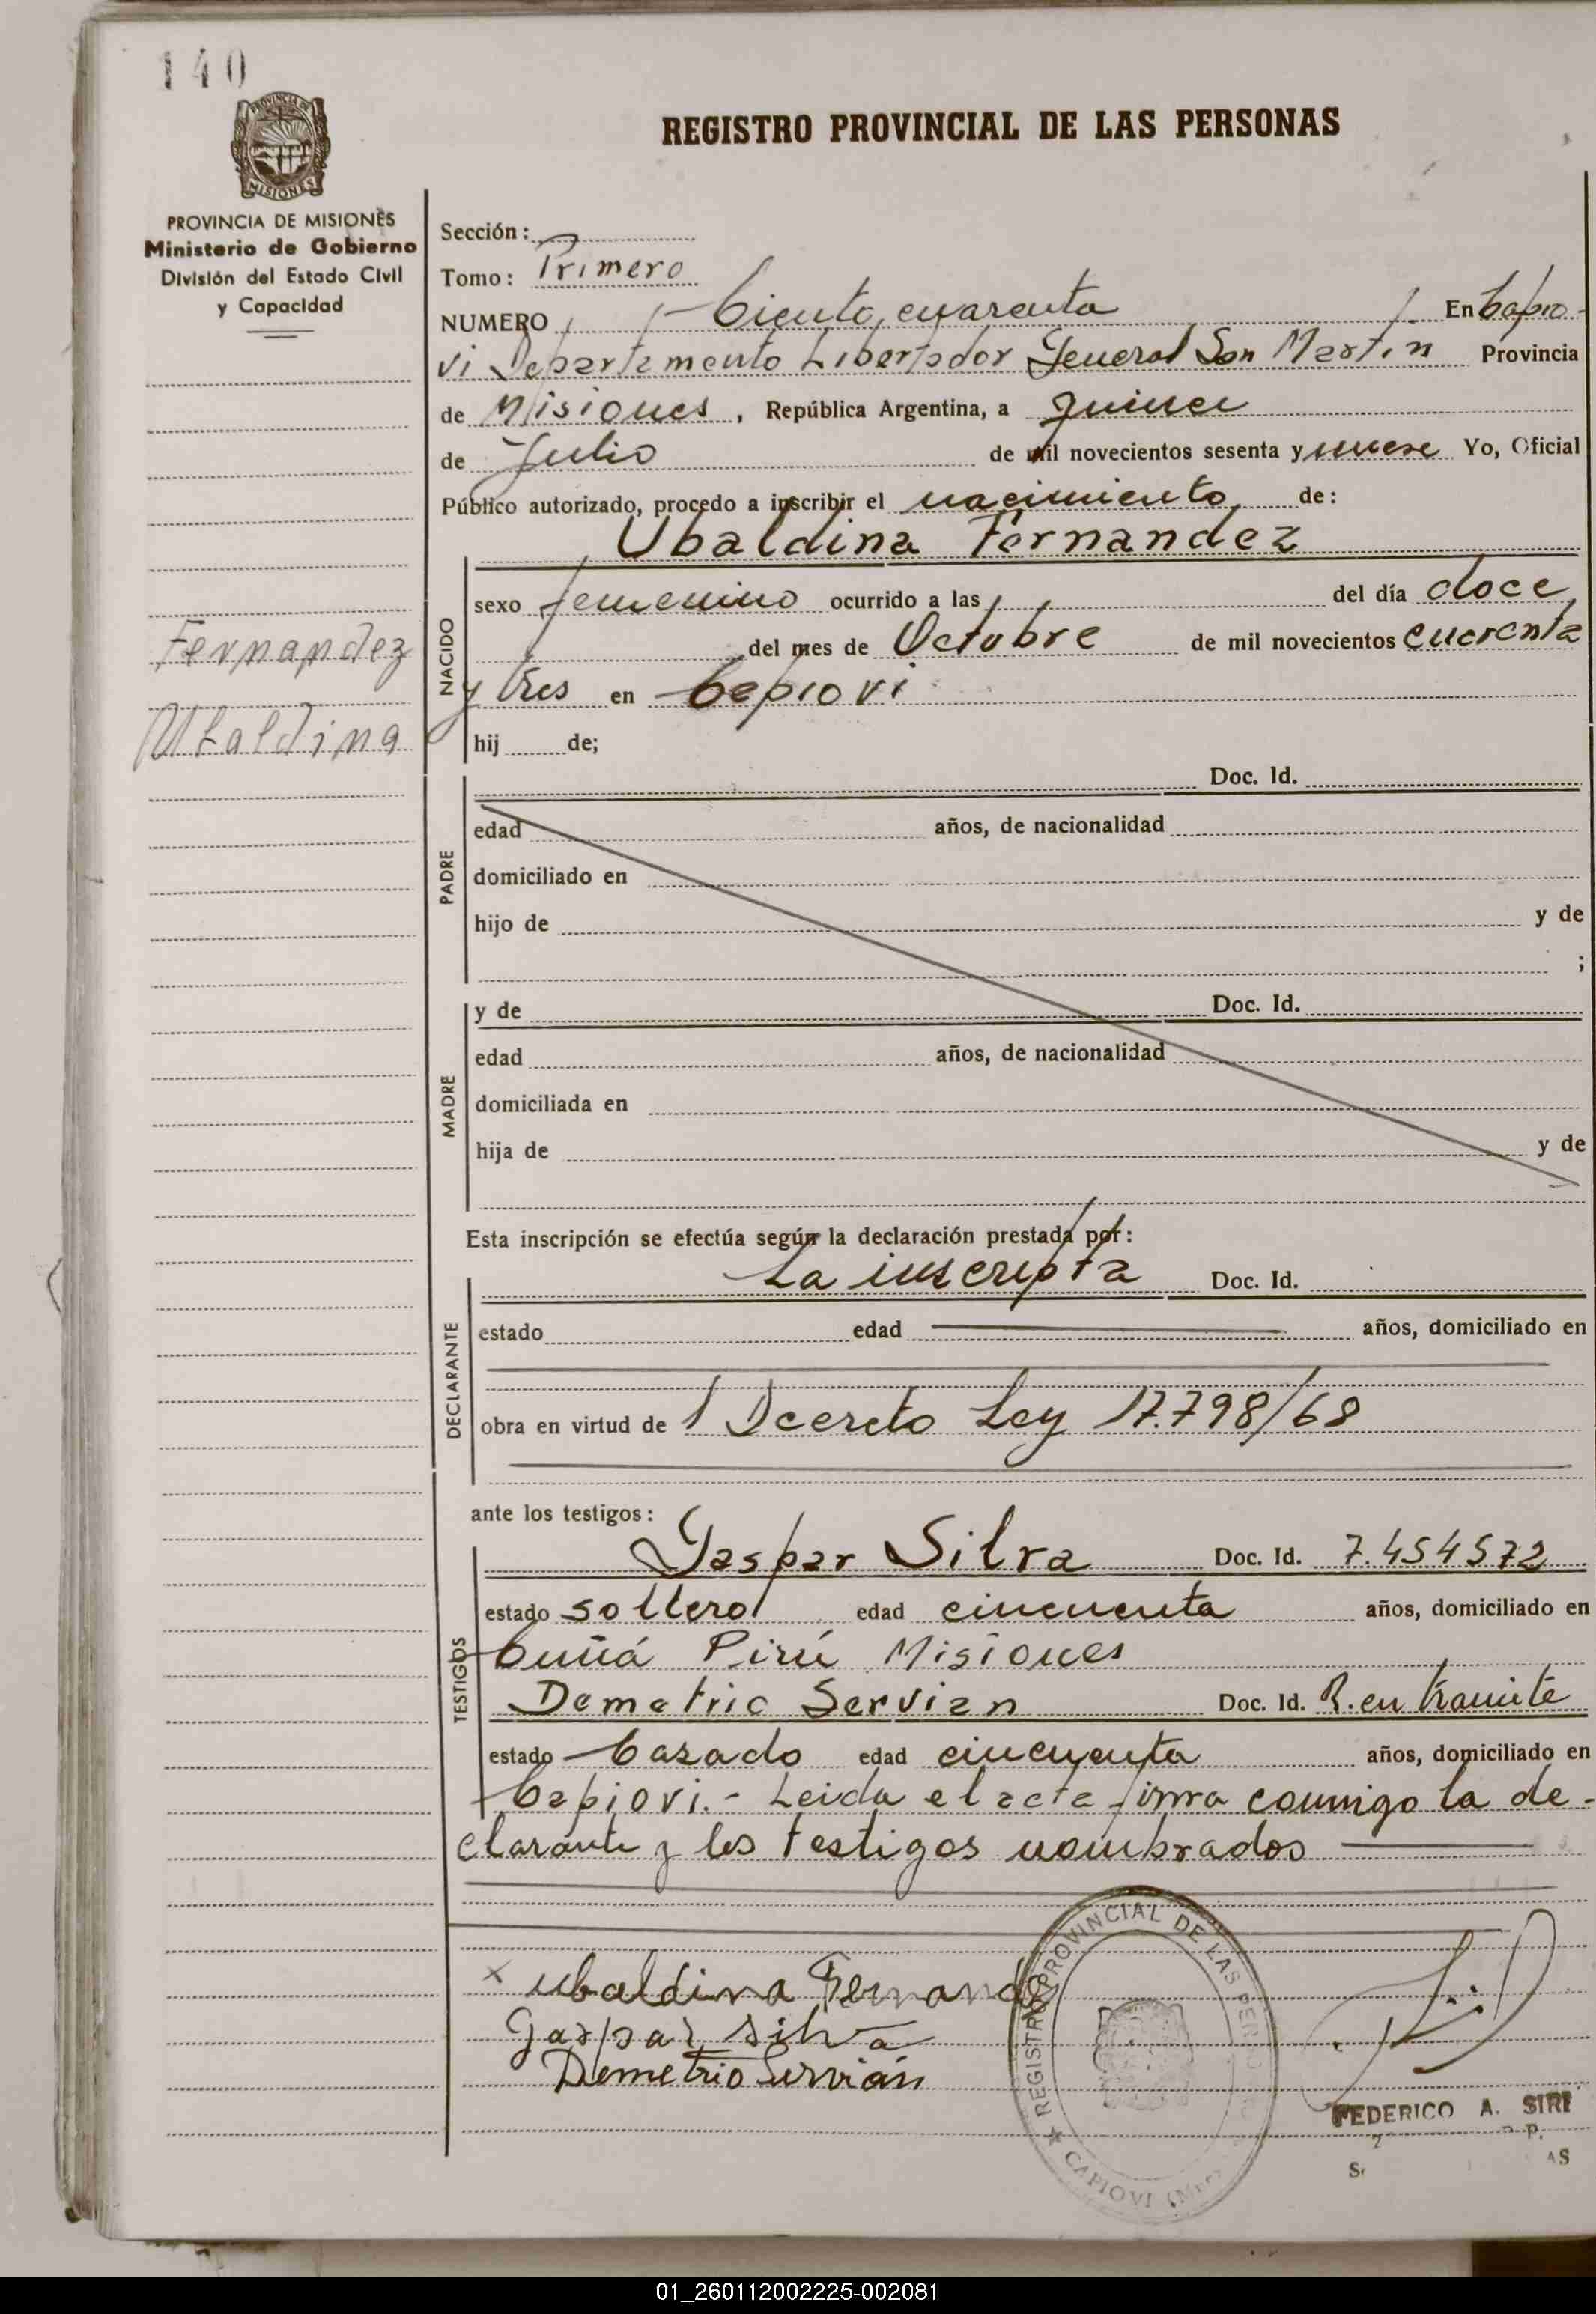 140
PROVINCIA DE
MISIONES
PROVINCIA DE MISIONES
Ministerio de Gobierno
División del Estado Civil
y Capacidad
REGISTRO PROVINCIAL DE LAS PERSONAS
Sección:
Tomo: Primero
NUMERO Ciento cuarenta En Capio-
vi Departamento Libertador General San Martín Provincia
de Misiones, República Argentina, a Quince
de Julio de mil novecientos sesenta y nueve Yo, Oficial
Público autorizado, procedo a inscribir el nacimiento de:
Ubaldina Fernandez
NACIDO
sexo femenino ocurrido a las del día doce
del mes de Octubre de mil novecientos cuarenta
y tres en Capiovi
hij de;
Fernandez
Ubaldina
PADRE
Doc. Id.
edad años, de nacionalidad
domiciliado en
hijo de y de
;
MADRE
y de Doc. Id.
edad años, de nacionalidad
domiciliada en
hija de y de
Esta inscripción se efectúa según la declaración prestada por:
DECLARANTE
La inscripta Doc. Id.
estado edad años, domiciliado en
obra en virtud de Decreto Ley 17.798/68
ante los testigos:
TESTIGOS
Gaspar Silva Doc. Id. 7.454572
estado soltero edad cincuenta años, domiciliado en
Cuñá Pirú Misiones
Demetrio Servian Doc. Id. R. en tramite
estado Casado edad cincuenta años, domiciliado en
Capiovi.- Leida el acta firma conmigo la de-
clarante y los testigos nombrados
x Ubaldina Fernandez
Gaspar Silva
Demetrio Servián
REGISTRO PROVINCIAL DE LAS PERSONAS
CAPIOVI
FEDERICO A. SIRI
01_260112002225-002081